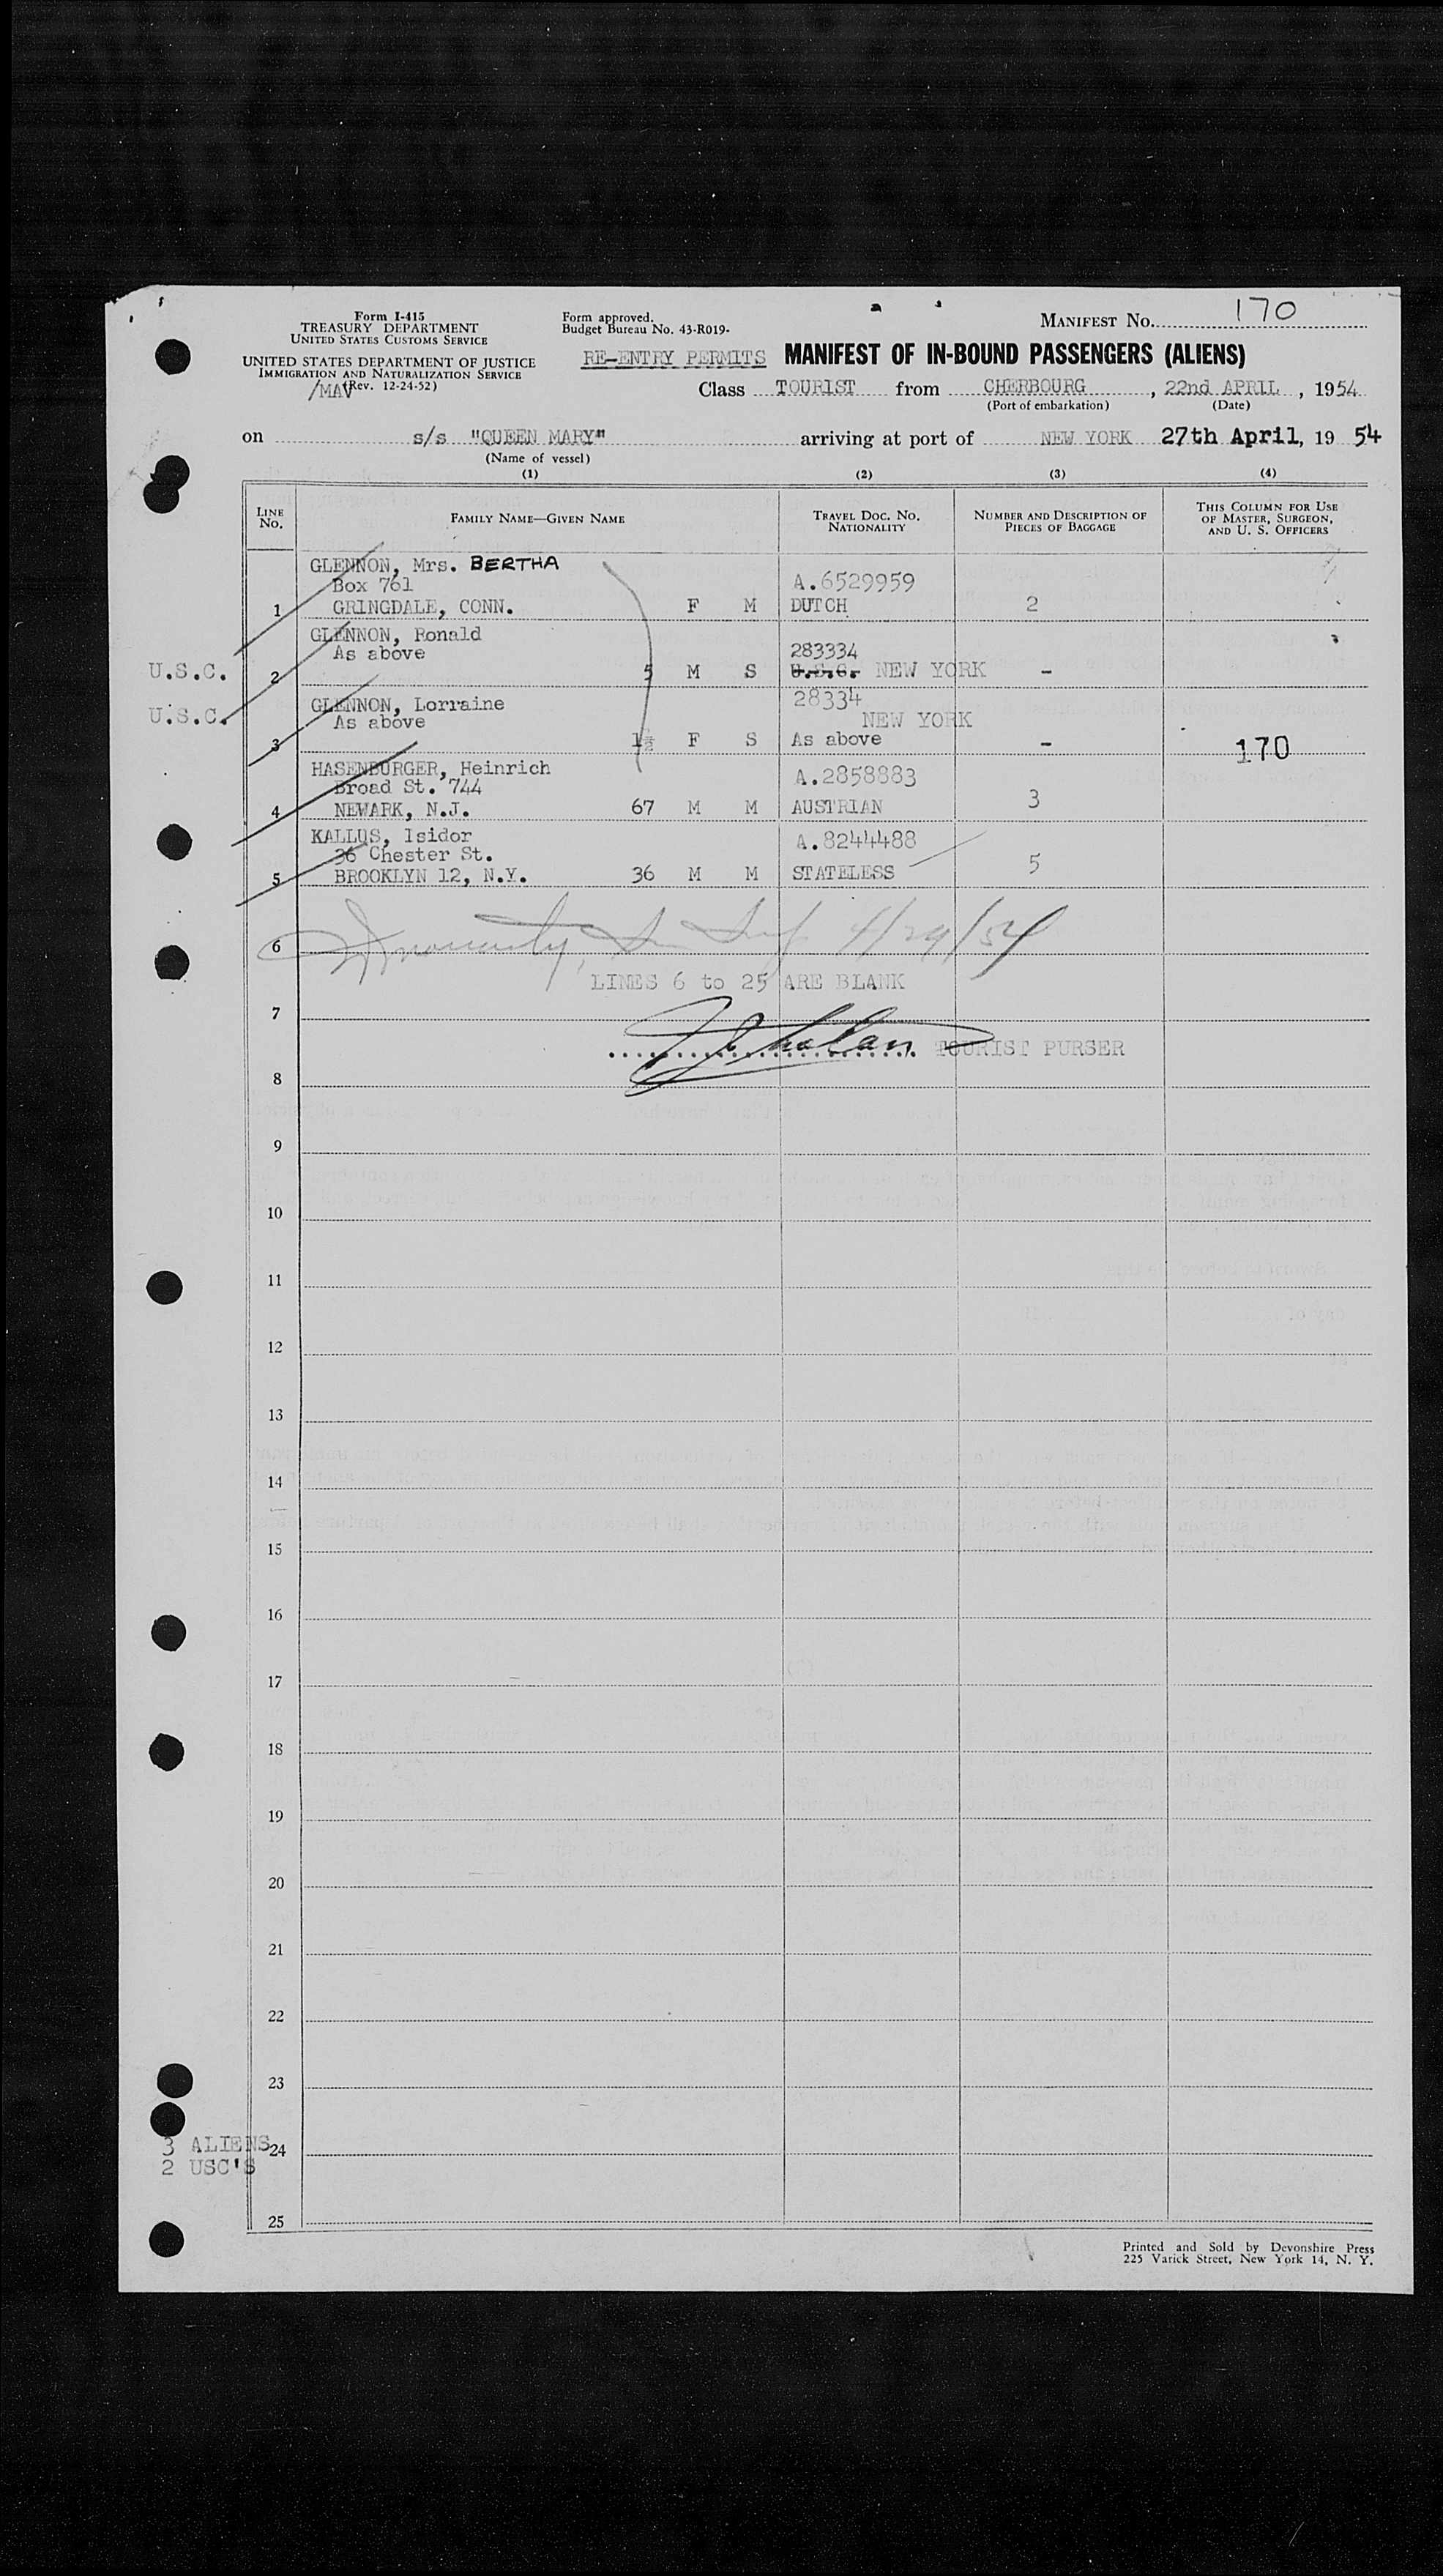 170
Form I-415
TREASURY DEPARTMENT
UNITED STATES CUSTOMS SERVICE
UNITED STATES DEPARTMENT OF JUSTICE
IMMIGRATION AND NATURALIZATION SERVICE
/MAV (Rev. 12-24-52)
Form approved.
Budget Bureau No. 43-R019-
MANIFEST No.
RE-ENTRY PERMITS MANIFEST OF IN-BOUND PASSENGERS (ALIENS)
Class TOURIST from CHERBOURG, 22nd APRIL, 1954
(Port of embarkation) (Date)
on s/s "QUEEN MARY" arriving at port of NEW YORK 27th April, 19 54
(Name of vessel)
(1) (2) (3) (4)
LINE No. FAMILY NAME—GIVEN NAME TRAVEL DOC. No. NATIONALITY NUMBER AND DESCRIPTION OF PIECES OF BAGGAGE THIS COLUMN FOR USE OF MASTER, SURGEON, AND U. S. OFFICERS
GLENNON, Mrs. BERTHA
Box 761 A.6529959
1 GRINGDALE, CONN. F M DUTCH 2
GLENNON, Ronald
As above 283334
U.S.C. 2 5 M S U.S.C. NEW YORK -
GLENNON, Lorraine 28334
U.S.C. As above NEW YORK
3 1½ F S As above - 170
HASENBURGER, Heinrich A.2858883
Broad St. 744
4 NEWARK, N.J. 67 M M AUSTRIAN 3
KALLUS, Isidor A.8244488
36 Chester St.
5 BROOKLYN 12, N.Y. 36 M M STATELESS 5
6 4/29/54
LINES 6 to 25 ARE BLANK
7
TOURIST PURSER
8
9
10
11
12
13
14
15
16
17
18
19
20
21
22
23
3 ALIENS 24
2 USC'S
25
Printed and Sold by Devonshire Press
225 Varick Street, New York 14, N. Y.